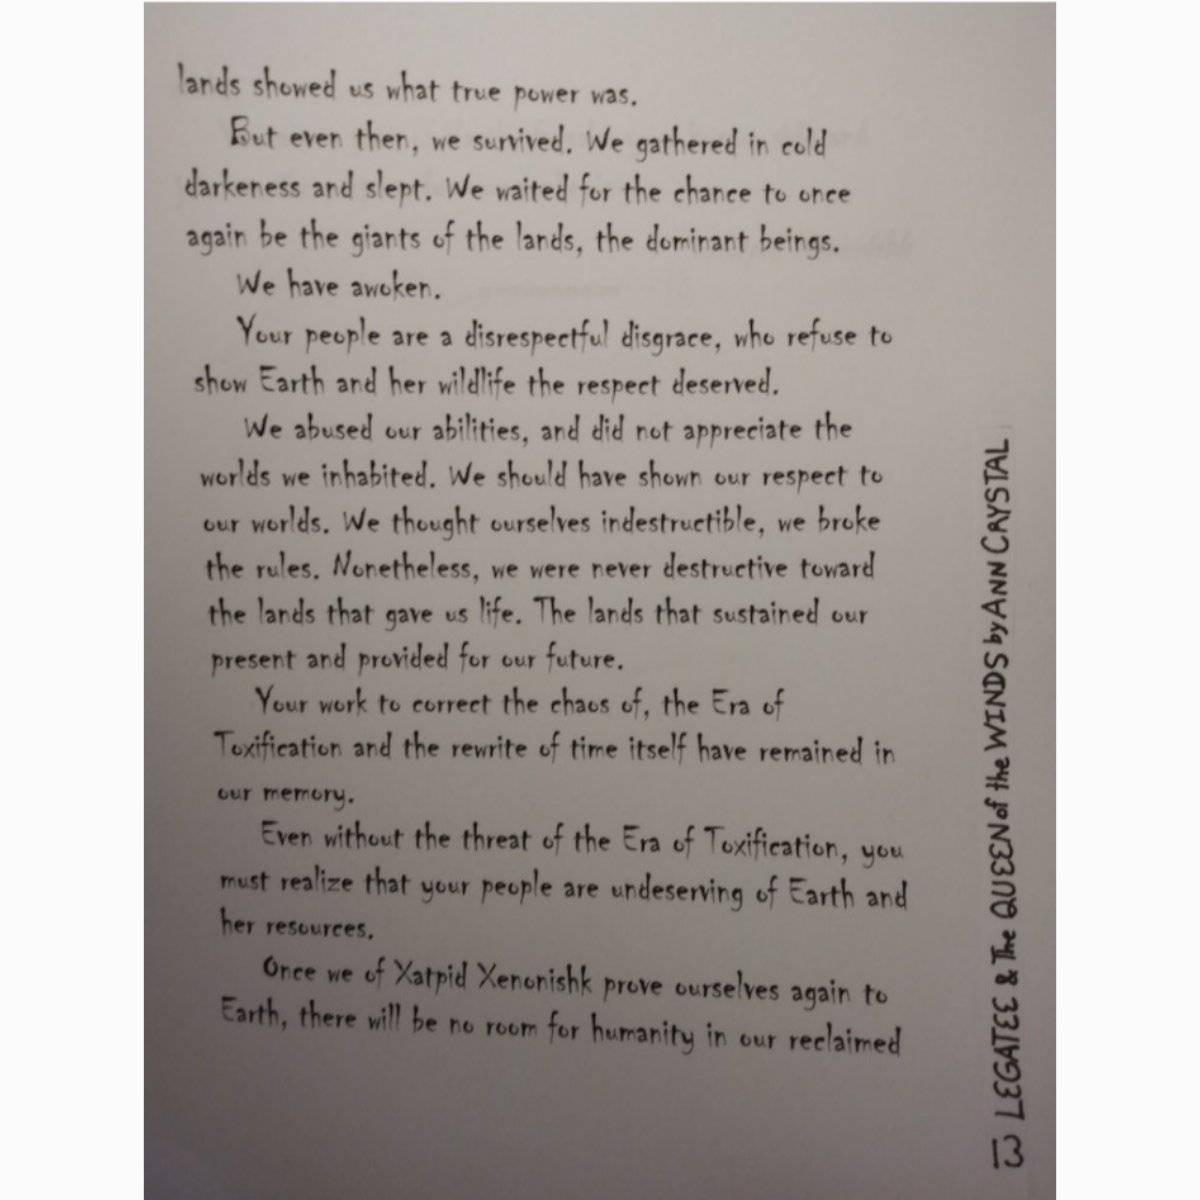 lands showed us what true power was.
But even then, we survived. We gathered in cold
darkeness and slept. We waited for the chance to once
again be the giants of the lands, the dominant beings.
We have awoken.
Your people are a disrespectful disgrace, who refuse to
show Earth and her wildlife the respect deserved.
We abused our abilities, and did not appreciate the
worlds we inhabited. We should have shown our respect to
our worlds. We thought ourselves indestructible, we broke
the rules. Nonetheless, we were never destructive toward
the lands that gave us life. The lands that sustained our
present and provided for our future.
Your work to correct the chaos of, the Era of
Toxification and the rewrite of time itself have remained in
our memory.
Even without the threat of the Era of Toxification, you
must realize that your people are undeserving of Earth and
her resources.
Once we of Xatpid Xenonishk prove ourselves again to
Earth, there will be no room for humanity in our reclaimed
13 LEGATEE & The QUEEN of the WINDS by ANN CRYSTAL